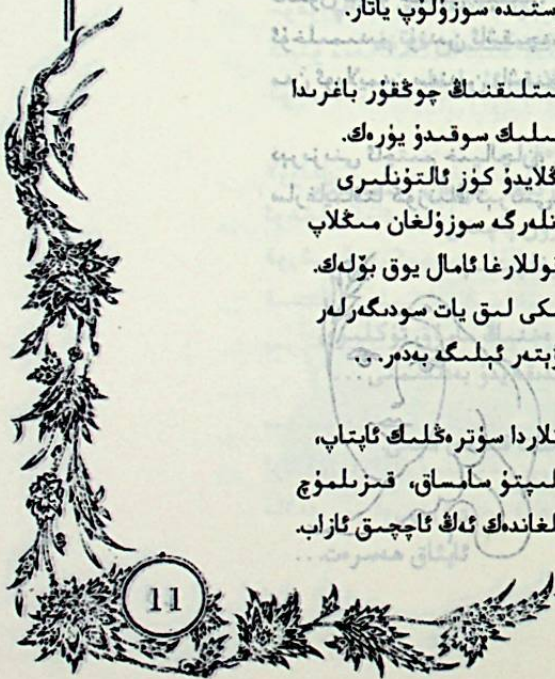 ستىدە سوزۇلۇپ ياتار.
ىتلىقنىڭ چوڭقۇر باغرىدا
ىلىك سوقىدۇ يۈرەك.
ڭلايدۇ كۈز ئالتۇنلىرى
نلەرگە سوزۇلغان مىڭلاپ
قوللارغا ئامال يوق بۆلەك.
ىكى لىق يات سودىگەرلەر
ۈپتەر ئېلىگە بەدەر...
ڭلاردا سۈترەڭلىك ئاپتاپ،
لىپتۇ سامساق، قىزىلمۇچ
لغاندەك ئەڭ ئاچچىق ئازاب.
11